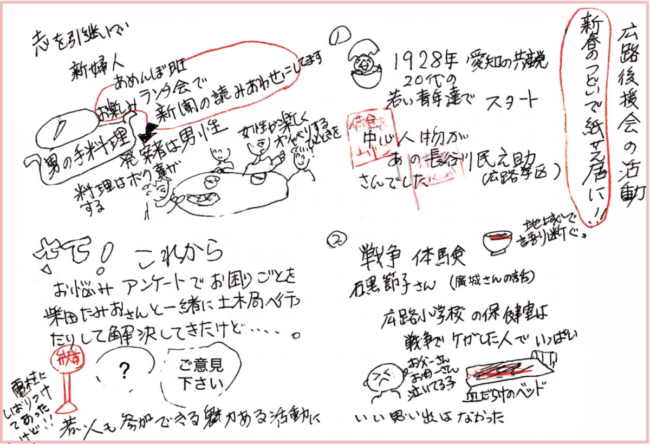 広路後援会の活動
新春のつどいで紙芝居に!!
①
1928年 愛知の共産党
20代の
若い青年達で スタート
中心人物が
あの長谷川民之助
さんでした (広路学区)
②
戦争 体験
石黒節子さん (廣城さんの話)
地域で
語り断ぐ。
広路小学校の保健室は
戦争でケガした人でいっぱい
お父ーさん
お母ーさん
泣いてる子
血だらけのベッド
いい思い出はなかった
志を引継いで
新婦人
あめんぼ班
ランチ会で
新聞の読みあわせにしてます
お楽しみ
男の手料理
発案者は男性
料理はボク達が
する
女性から楽しく
さて! これから
お悩みアンケートでお困りごとを
柴田たみおさんと一緒に土木局へ行っ
たりして解決してきたけど・・・・。
?
ご意見
下さい
電柱に
しばりつけ
てあった
けど!!
若い人も参加できる魅力ある活動に